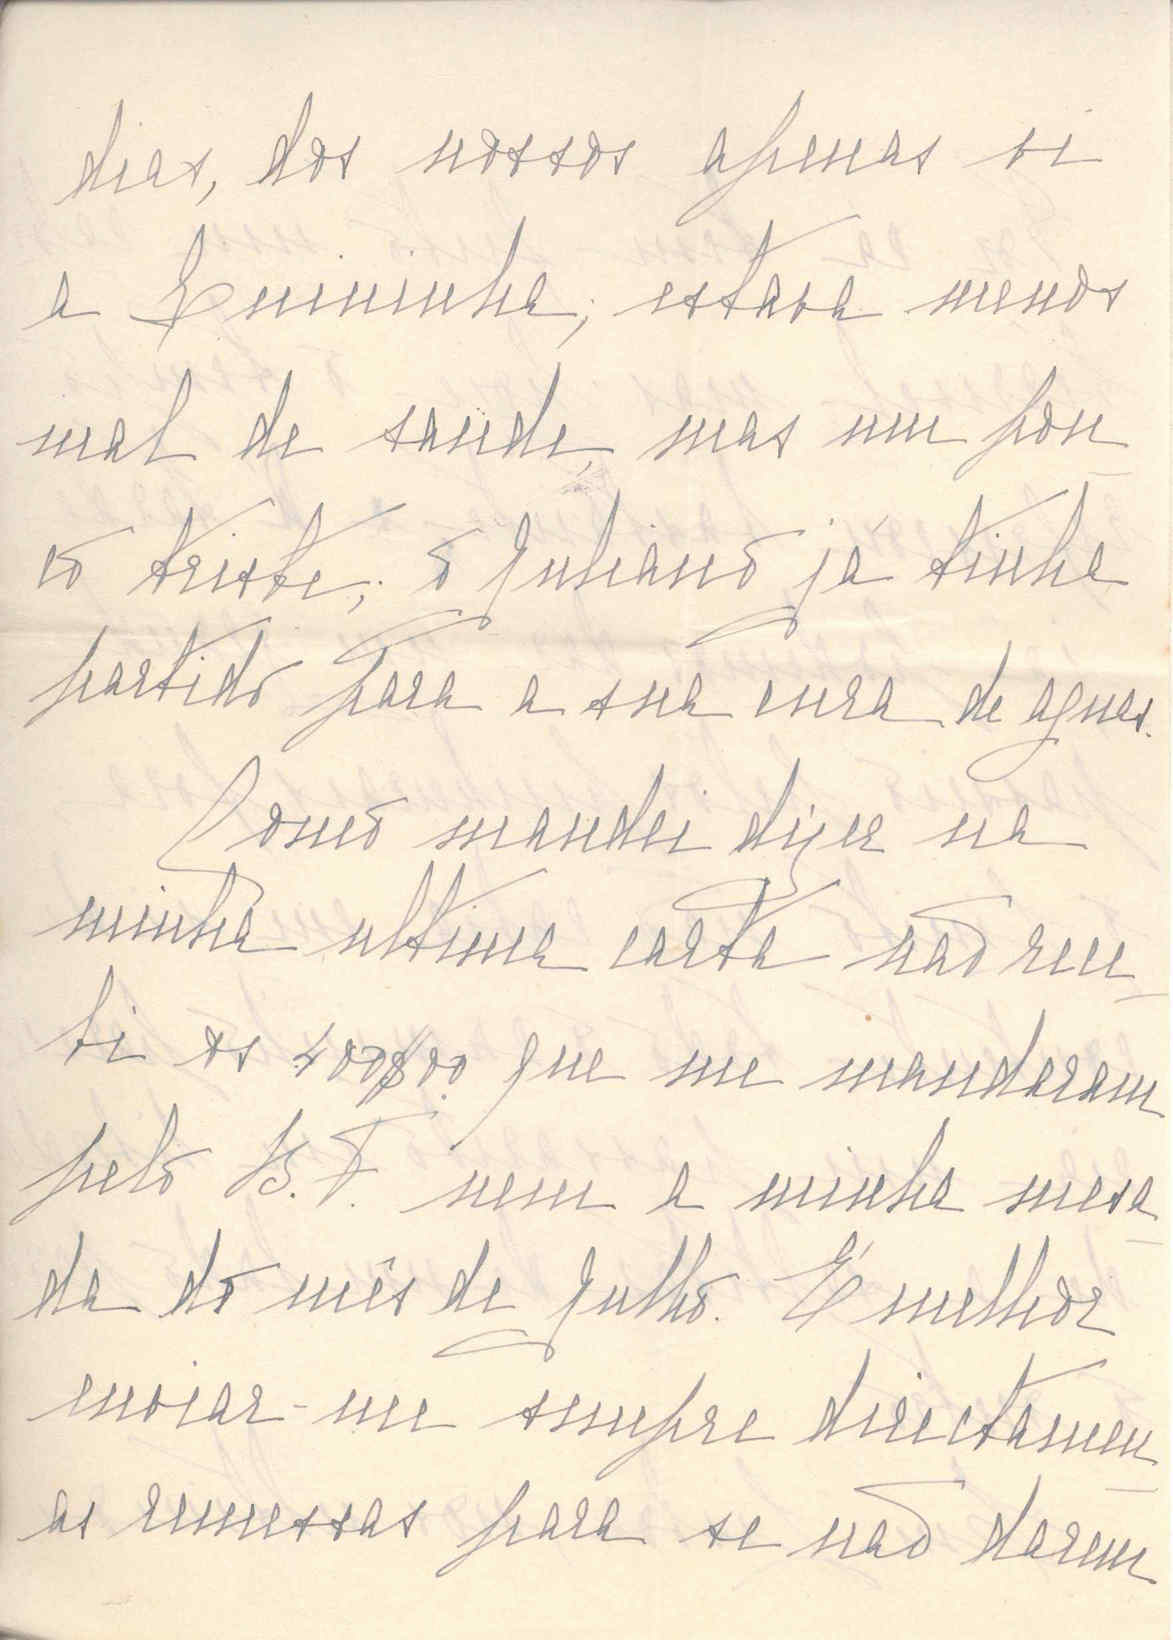 dias, dos nossos apenas vi
a Emininha; estava menos
mal de saude, mas um pou
co triste; o Juliano já tinha
partido para a sua cura de aguas.
Como mandei dizer na
minha ultima carta não rece
bi os 400$00 que me mandaram
pelo B. F. nem a minha mesa
da do mês de Julho. É melhor
enviar-me sempre directamen
as remessas para se não darem